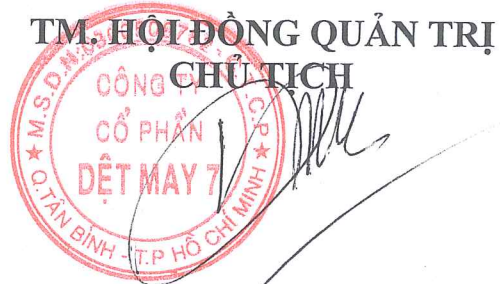 TM. HỘI ĐỒNG QUẢN TRỊ
CHỦ TỊCH
CÔNG TY
CỔ PHẦN
DỆT MAY 7
Q.TÂN BÌNH - T.P HỒ CHÍ MINH
M.S.D.N:
C.P